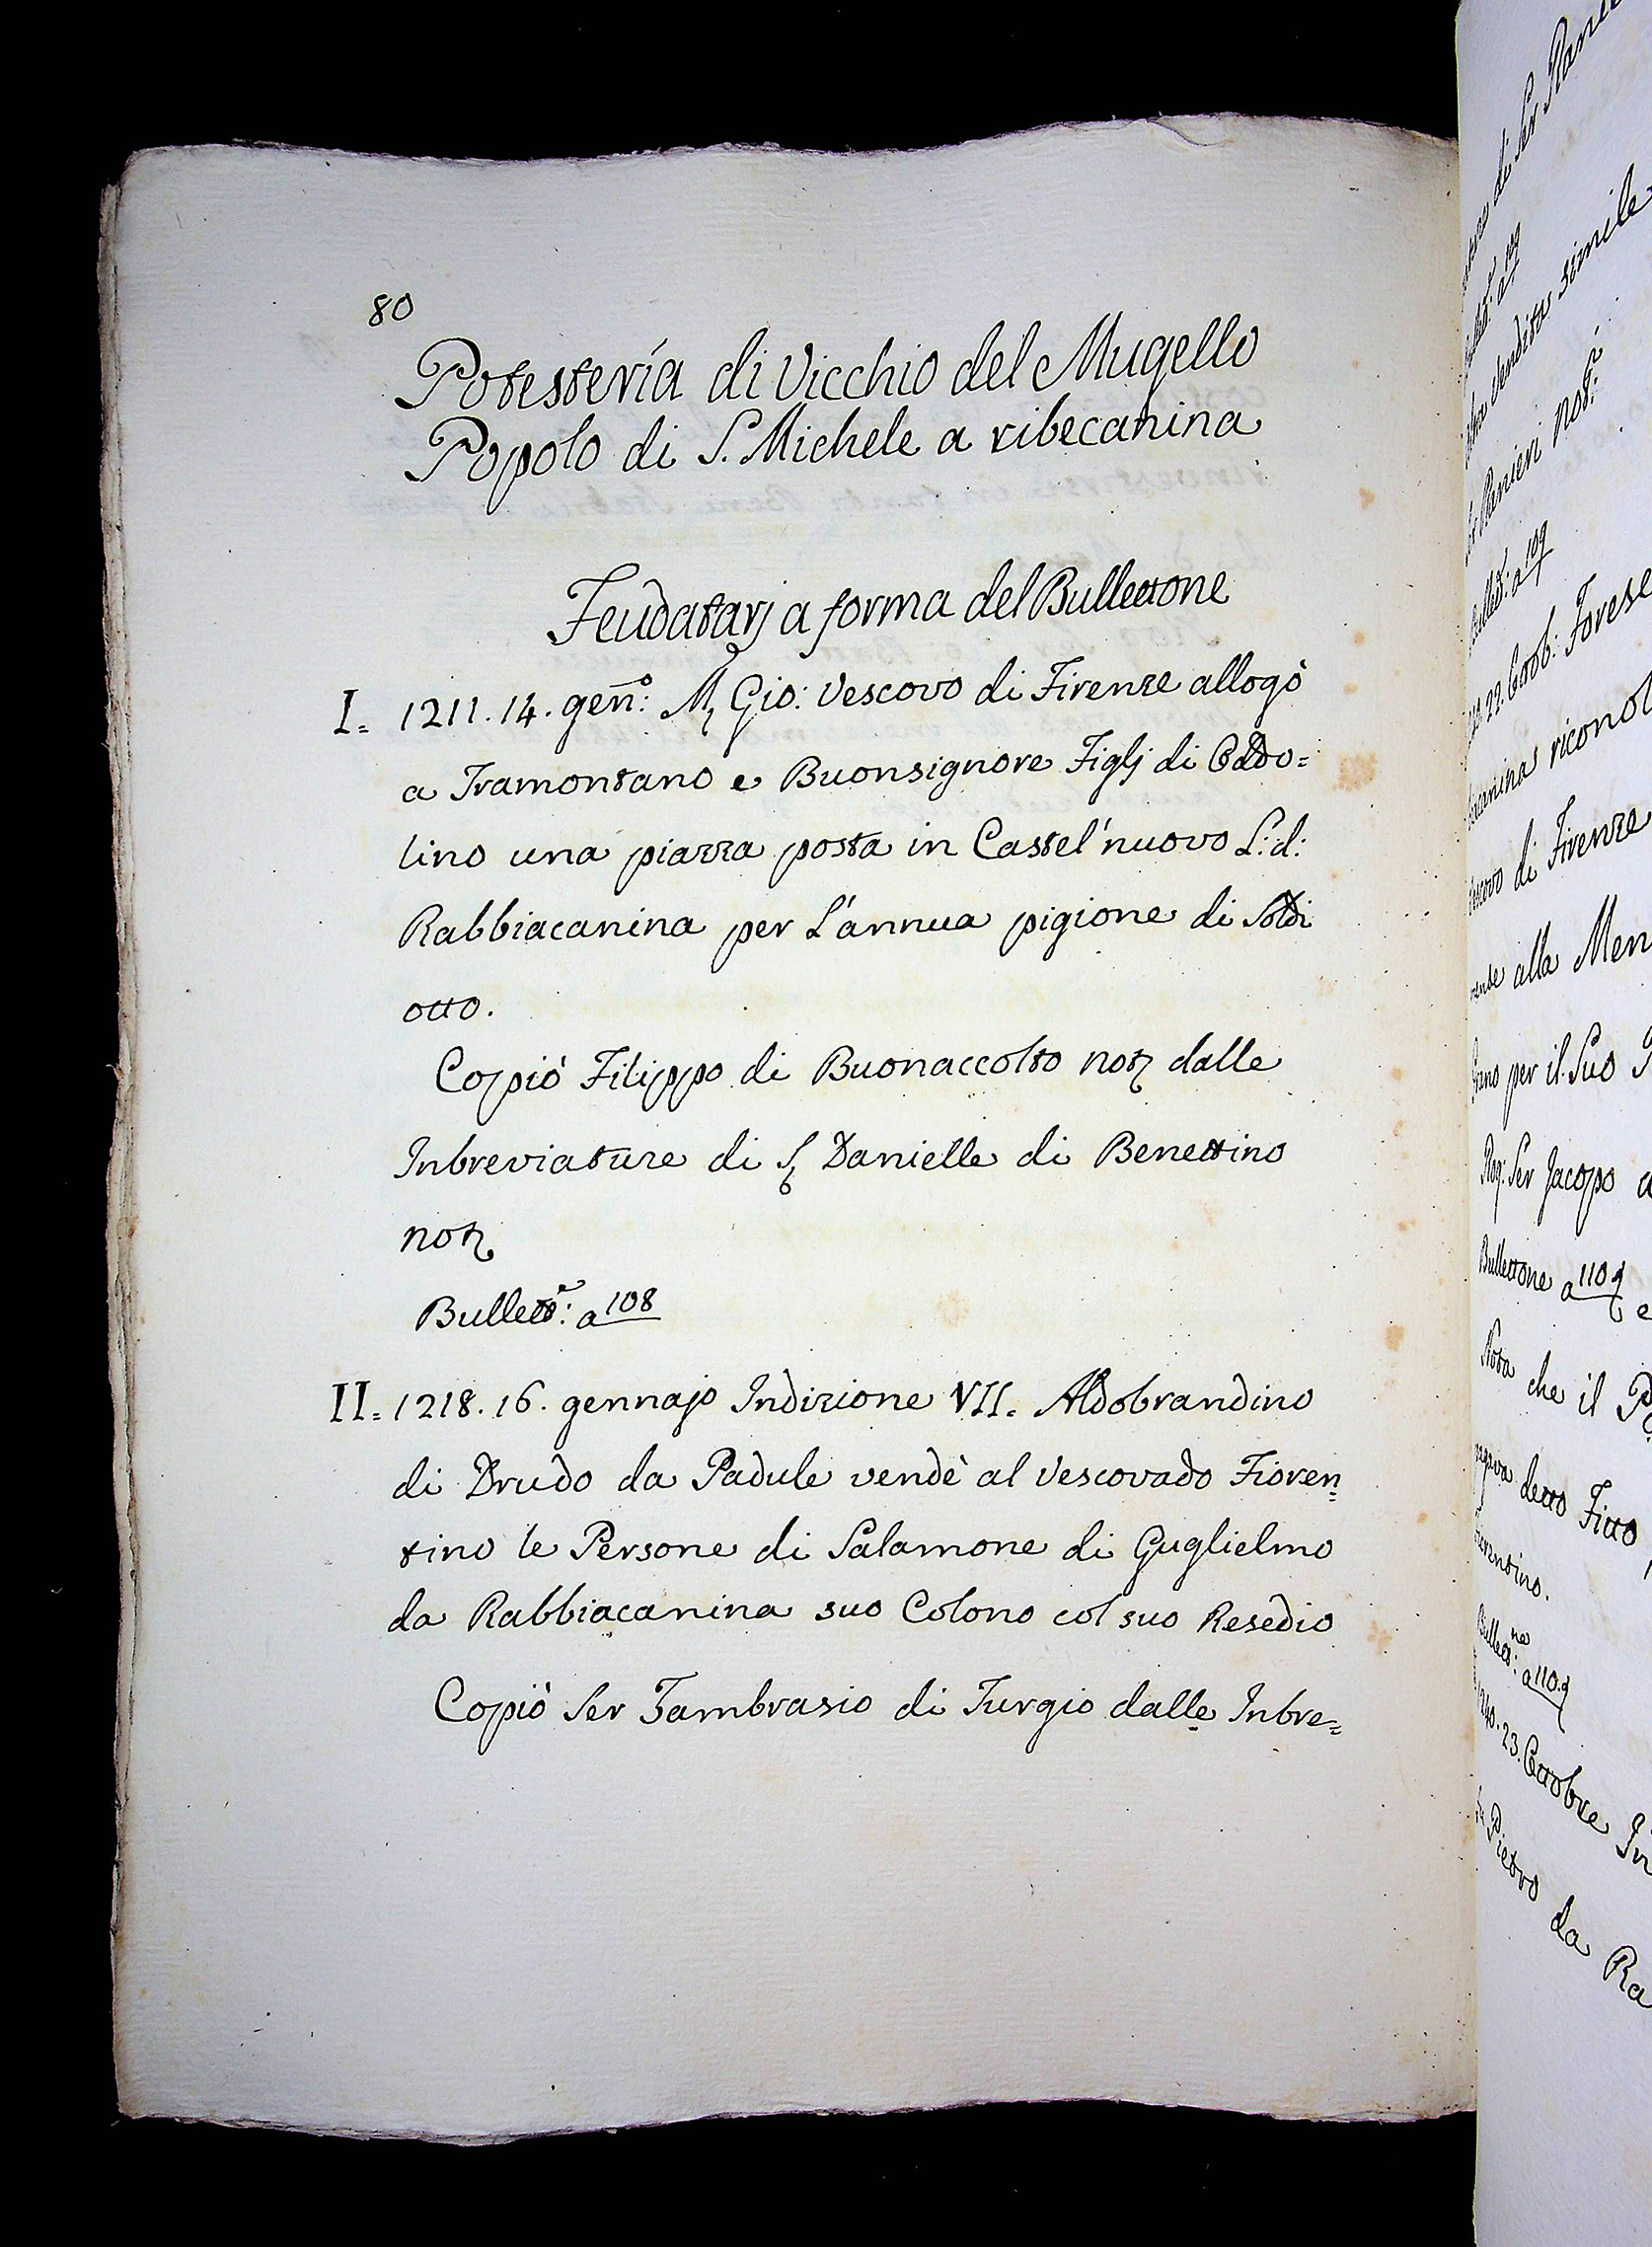 80
Potestería di Vicchio del Mugello
Popolo di S. Michele a ribecanina
Feudatarj a forma del Bullettone
I= 1211. 14. gen̄:º M, Gio: Vescovo di Firenze allogò
a Tramontano e Buonsignore Figlj di Oddo=
lino una piazza posta in Castel'nuovo L: d:
Rabbiacanina per L'annua pigione di Soldi
otto.
Copiò Filippo di Buonaccolto not dalle
Inbreviature di S, Danielle di Benettino
not
Bullett:e a 108
II= 1218. 16. gennajo Indizione VII. Aldobrandino
di Drudo da Padule vendè al Vescovado Fioren=
tino le Persone di Salamone di Guglielmo
da Rabbiacanina suo Colono col suo Resedio
Copiò Ser Jambrasio di Turgio dalle Inbre=
di Ser
vendita simile
Ranieri not:
Bullett: a 109
22. Ottob: Forese
riconob
Vescovo di Firenze
alla Men
per il Suo
Rog: Ser Jacopo
Bullettone a 110
Nota che il
detto Fitto
Bullett:ne a 110
23. Ottobre In
Pietro da Ra